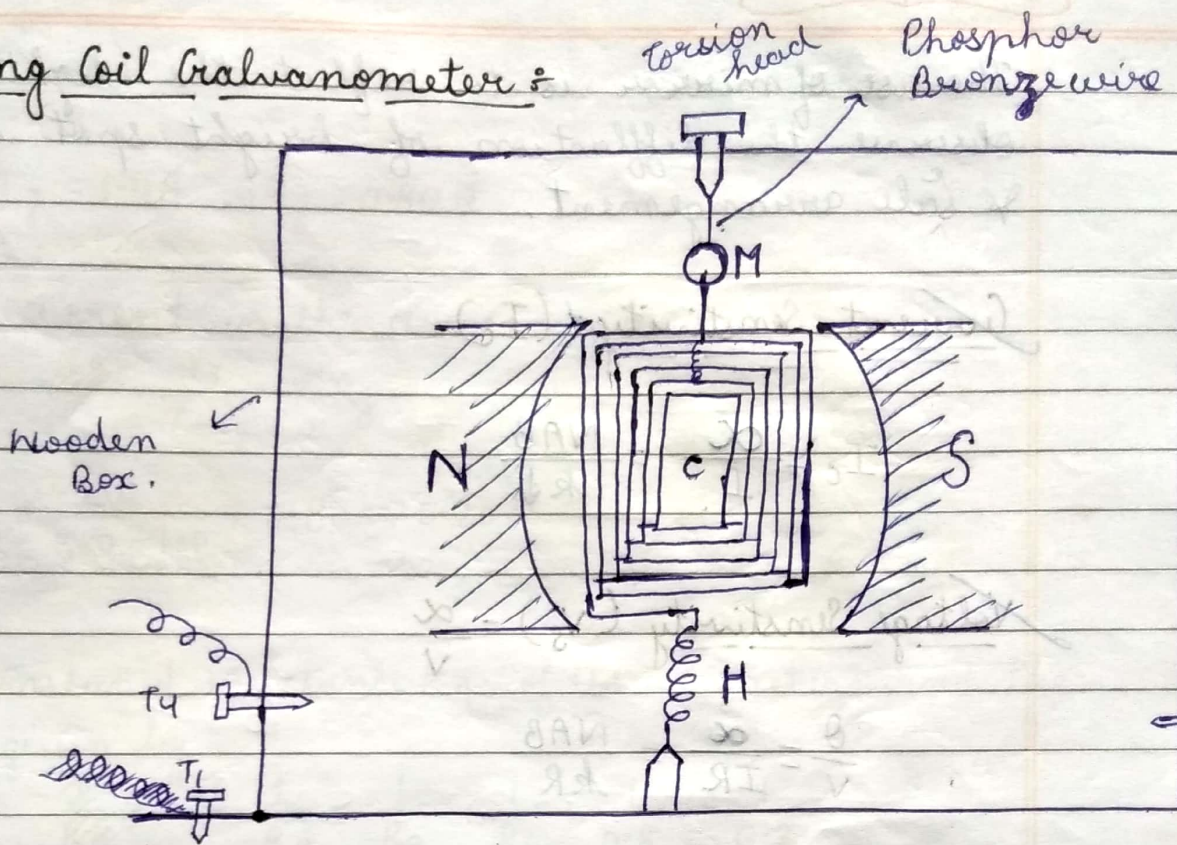 ng Coil Galvanometer :
Torsion head
Phosphor
Bronze wire
M
Wooden
Box.
N
C
S
H
T4
T1